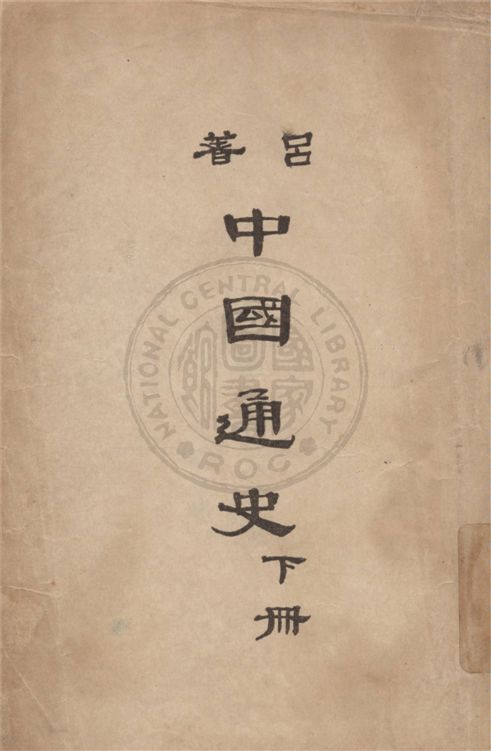 呂著
中國通史
下冊
NATIONAL CENTRAL LIBRARY
ROC
國家圖書館